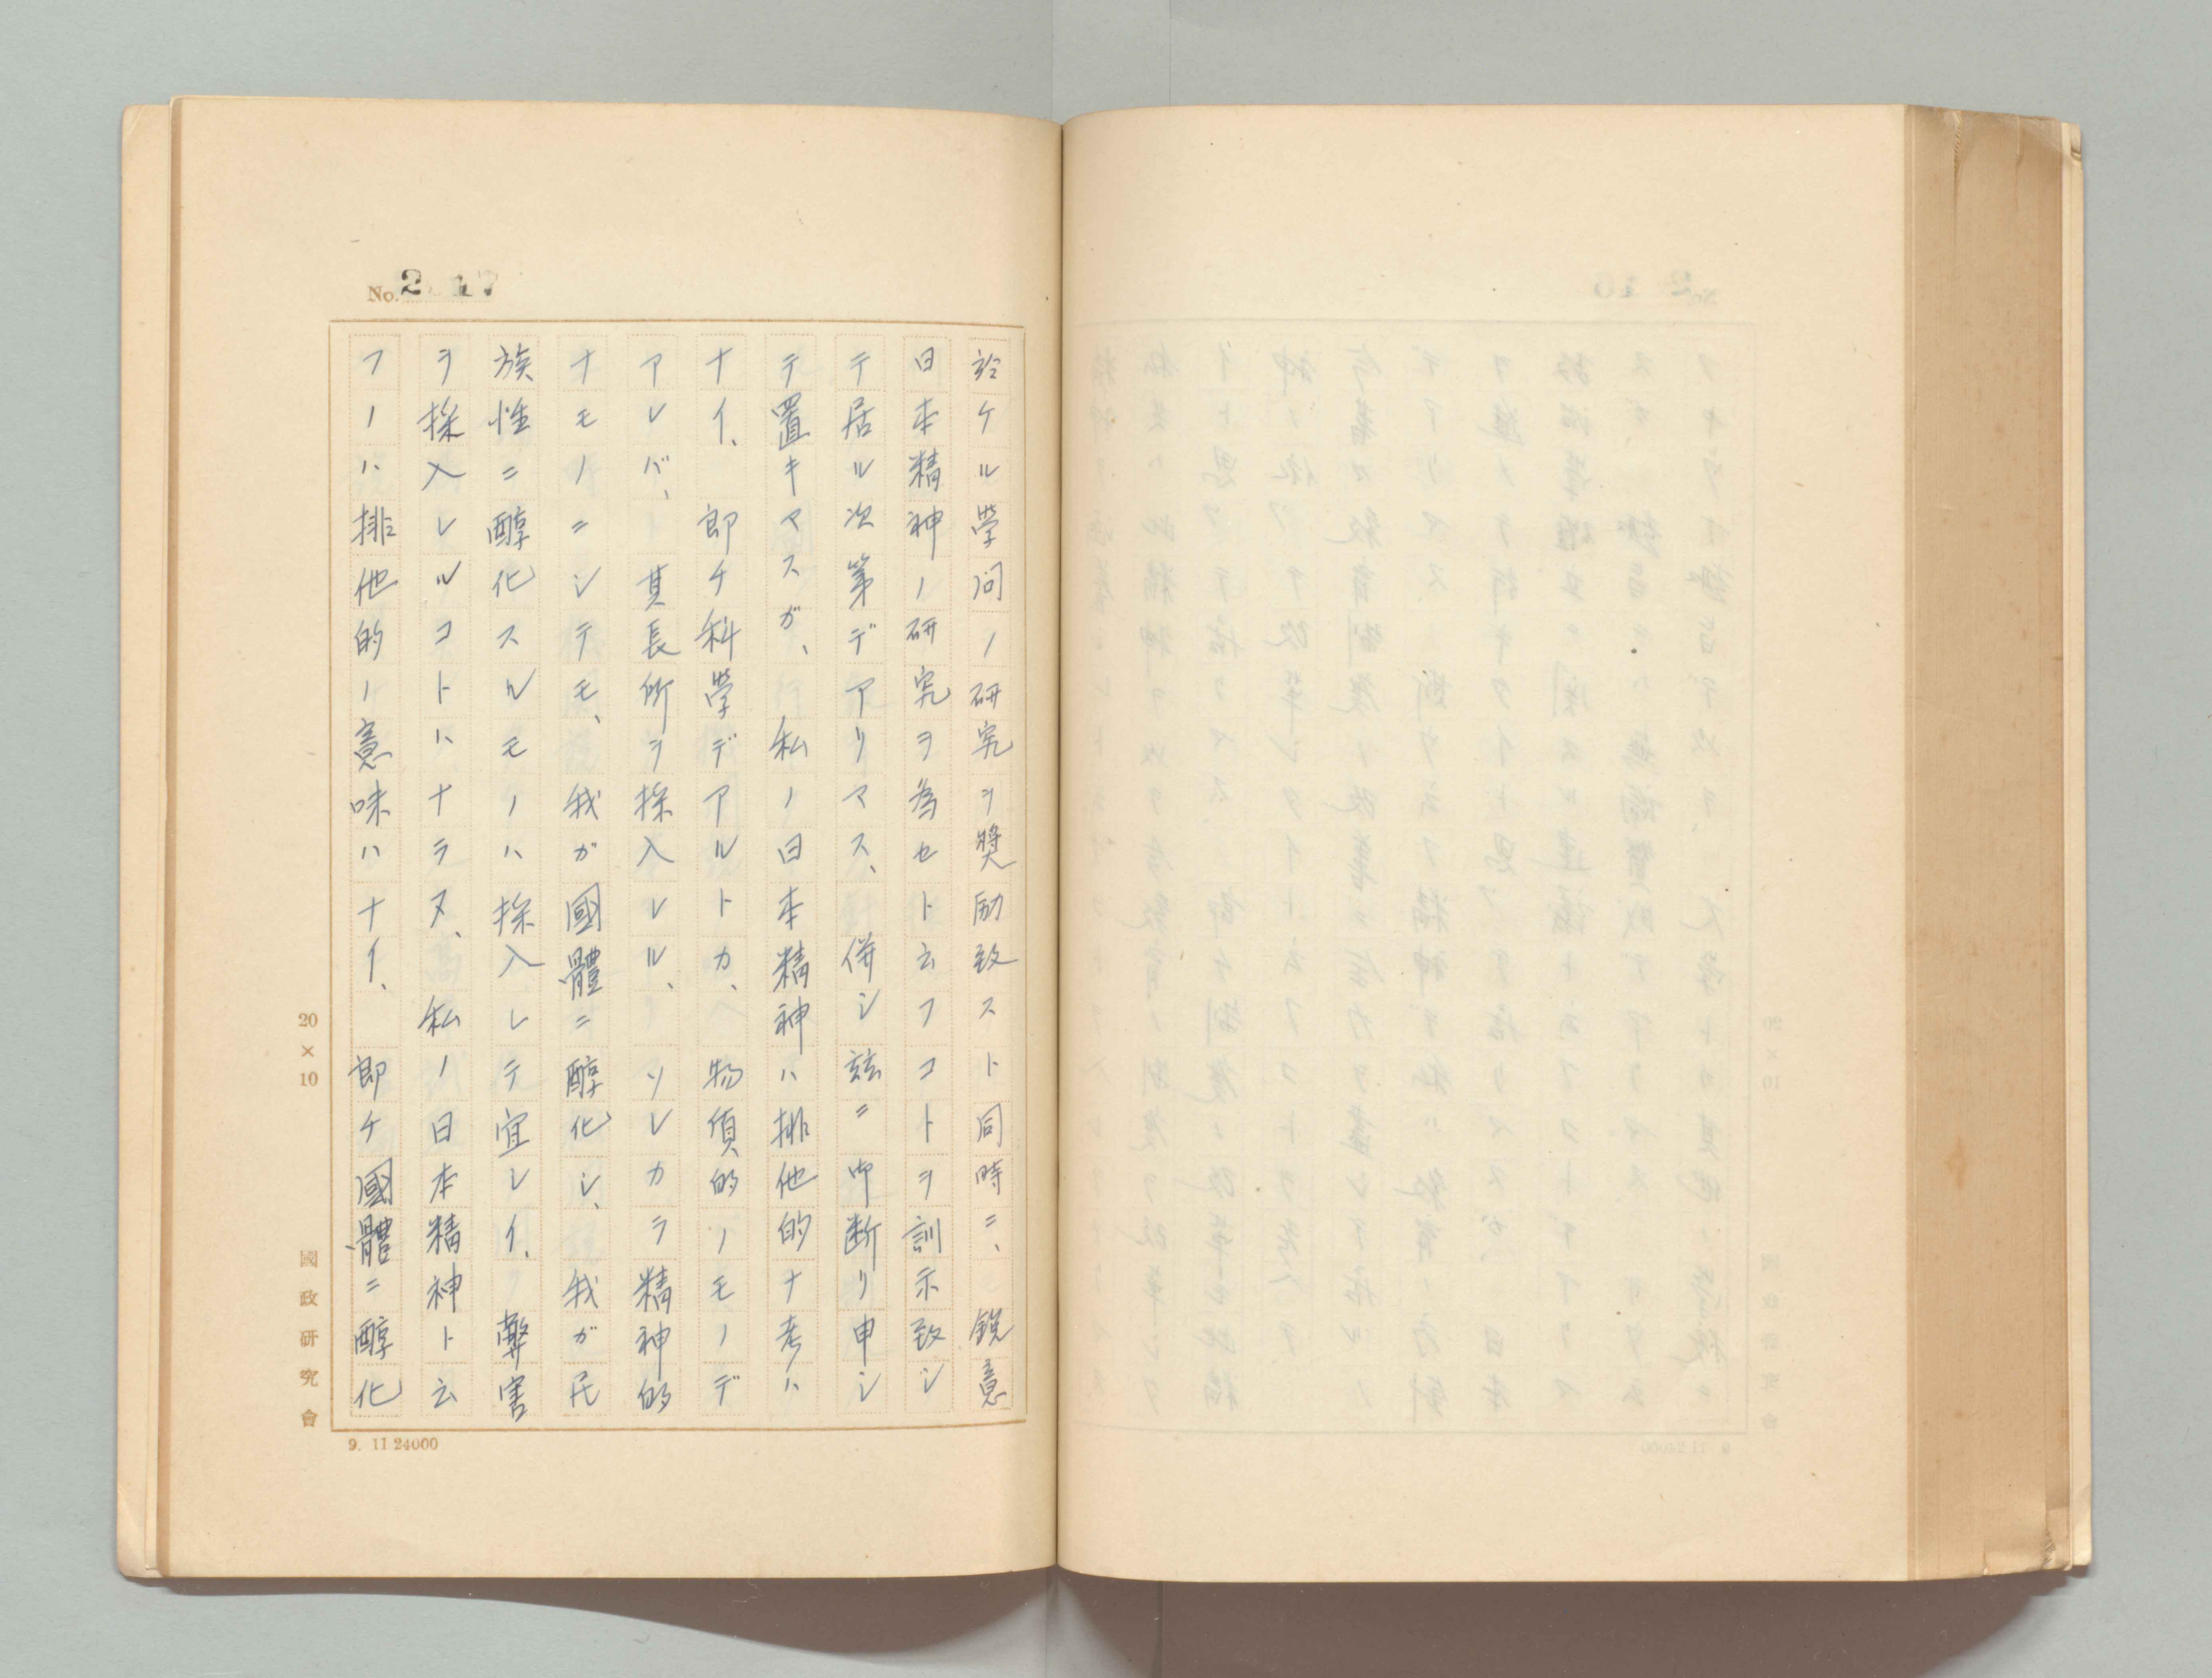 No. 2 17
於ケル學问ノ研究ヲ奬励致スト同時ニ、鋭意
日本精神ノ研究ヲ為セト云フコトヲ訓示致シ
テ居ル次第デアリマス、併シ玆ニ一寸断リ申シ
テ置キマスガ、私ノ日本精神ハ排他的ナ考ハ
ナイ、即チ科學デアルトカ、物質的ノモノデ
アレバ、其長所ヲ採入レル、ソレカラ精神的
ナモノニシテモ、我ガ國體ニ醇化シ、我ガ民
族性ニ醇化スルモノハ採入レテ宜シイ、弊害
ヲ採入レルコトハナラヌ、私ノ日本精神ト云
フノハ排他的ノ意味ハナイ、即チ國體ニ醇化
20×10
國政研究會
9. 11 24000